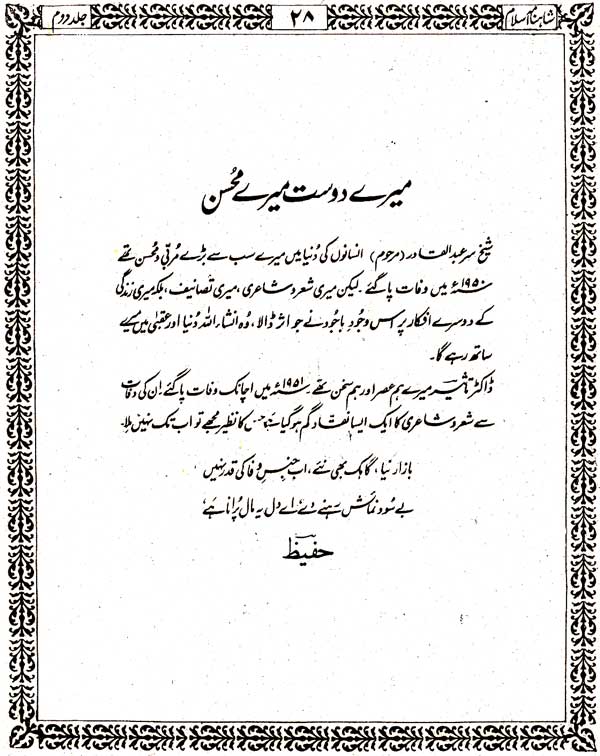 شاہنامہ اسلام
۲۸
جلد دوم
میرے دوست میرے محسن
شیخ سر عبدالقادر (مرحوم) انسانوں کی دُنیا میں میرے سب سے بڑے مُربّی و محسن تھے
۱۹۵۰ء میں وفات پا گئے۔ لیکن میری شعر و شاعری، میری تصانیف، بلکہ میری زندگی
کے دوسرے افکار پر اس وجودِ باجُود نے جو اثر ڈالا، وہ انشاء اللہ دُنیا اور عقبیٰ میں میرے
ساتھ رہے گا۔
ڈاکٹر تاثیر میرے ہم عصر اور ہم سخن تھے ۱۹۵۱ء میں اچانک وفات پا گئے اِن کی وفات
سے شعر و شاعری کا ایک ایسا نقاد گم ہو گیا ہے جس کا نظیر مجھے تو اب تک نہیں ملا۔
بازار نیا، گاہک بھی نئے، اب جنسِ وفا کی قدر نہیں
بے سُود نمائش رہنے دے، اے دل یہ مال پُرانا ہے
حفیظ